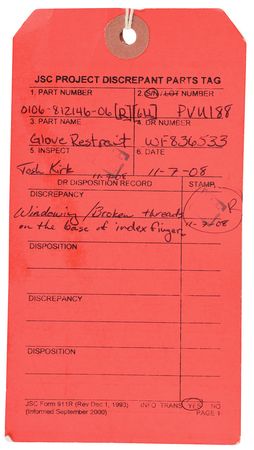 JSC PROJECT DISCREPANT PARTS TAG
1. PART NUMBER 2. S/N/LOT NUMBER
0106-812146-06 [R][6U] PVU188
3. PART NAME 4. DR NUMBER
Glove Restraint WF836533
5. INSPECT 6. DATE
Tosh Kirk 11-7-08
11-7-08
DR DISPOSITION RECORD STAMP
DISCREPANCY
R
Windowing/Broken threads 11-7-08
on the base of index finger
DISPOSITION
DISCREPANCY
DISPOSITION
JSC Form 911R (Rev Dec 1, 1993) INFO TRANS YES NO
(Informed September 2000) PAGE 1